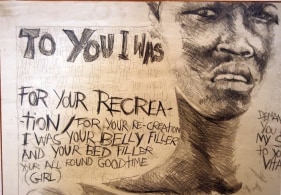 TO YOU I WAS
FOR YOUR RECREA-
TION / FOR YOUR RE-CREATION
I WAS YOUR BELLY FILLER
AND YOUR BED FILLER
YOUR ALL ROUND GOODTIME
(GIRL)
DEMAN
YOU
MY C
TO YO
WHA